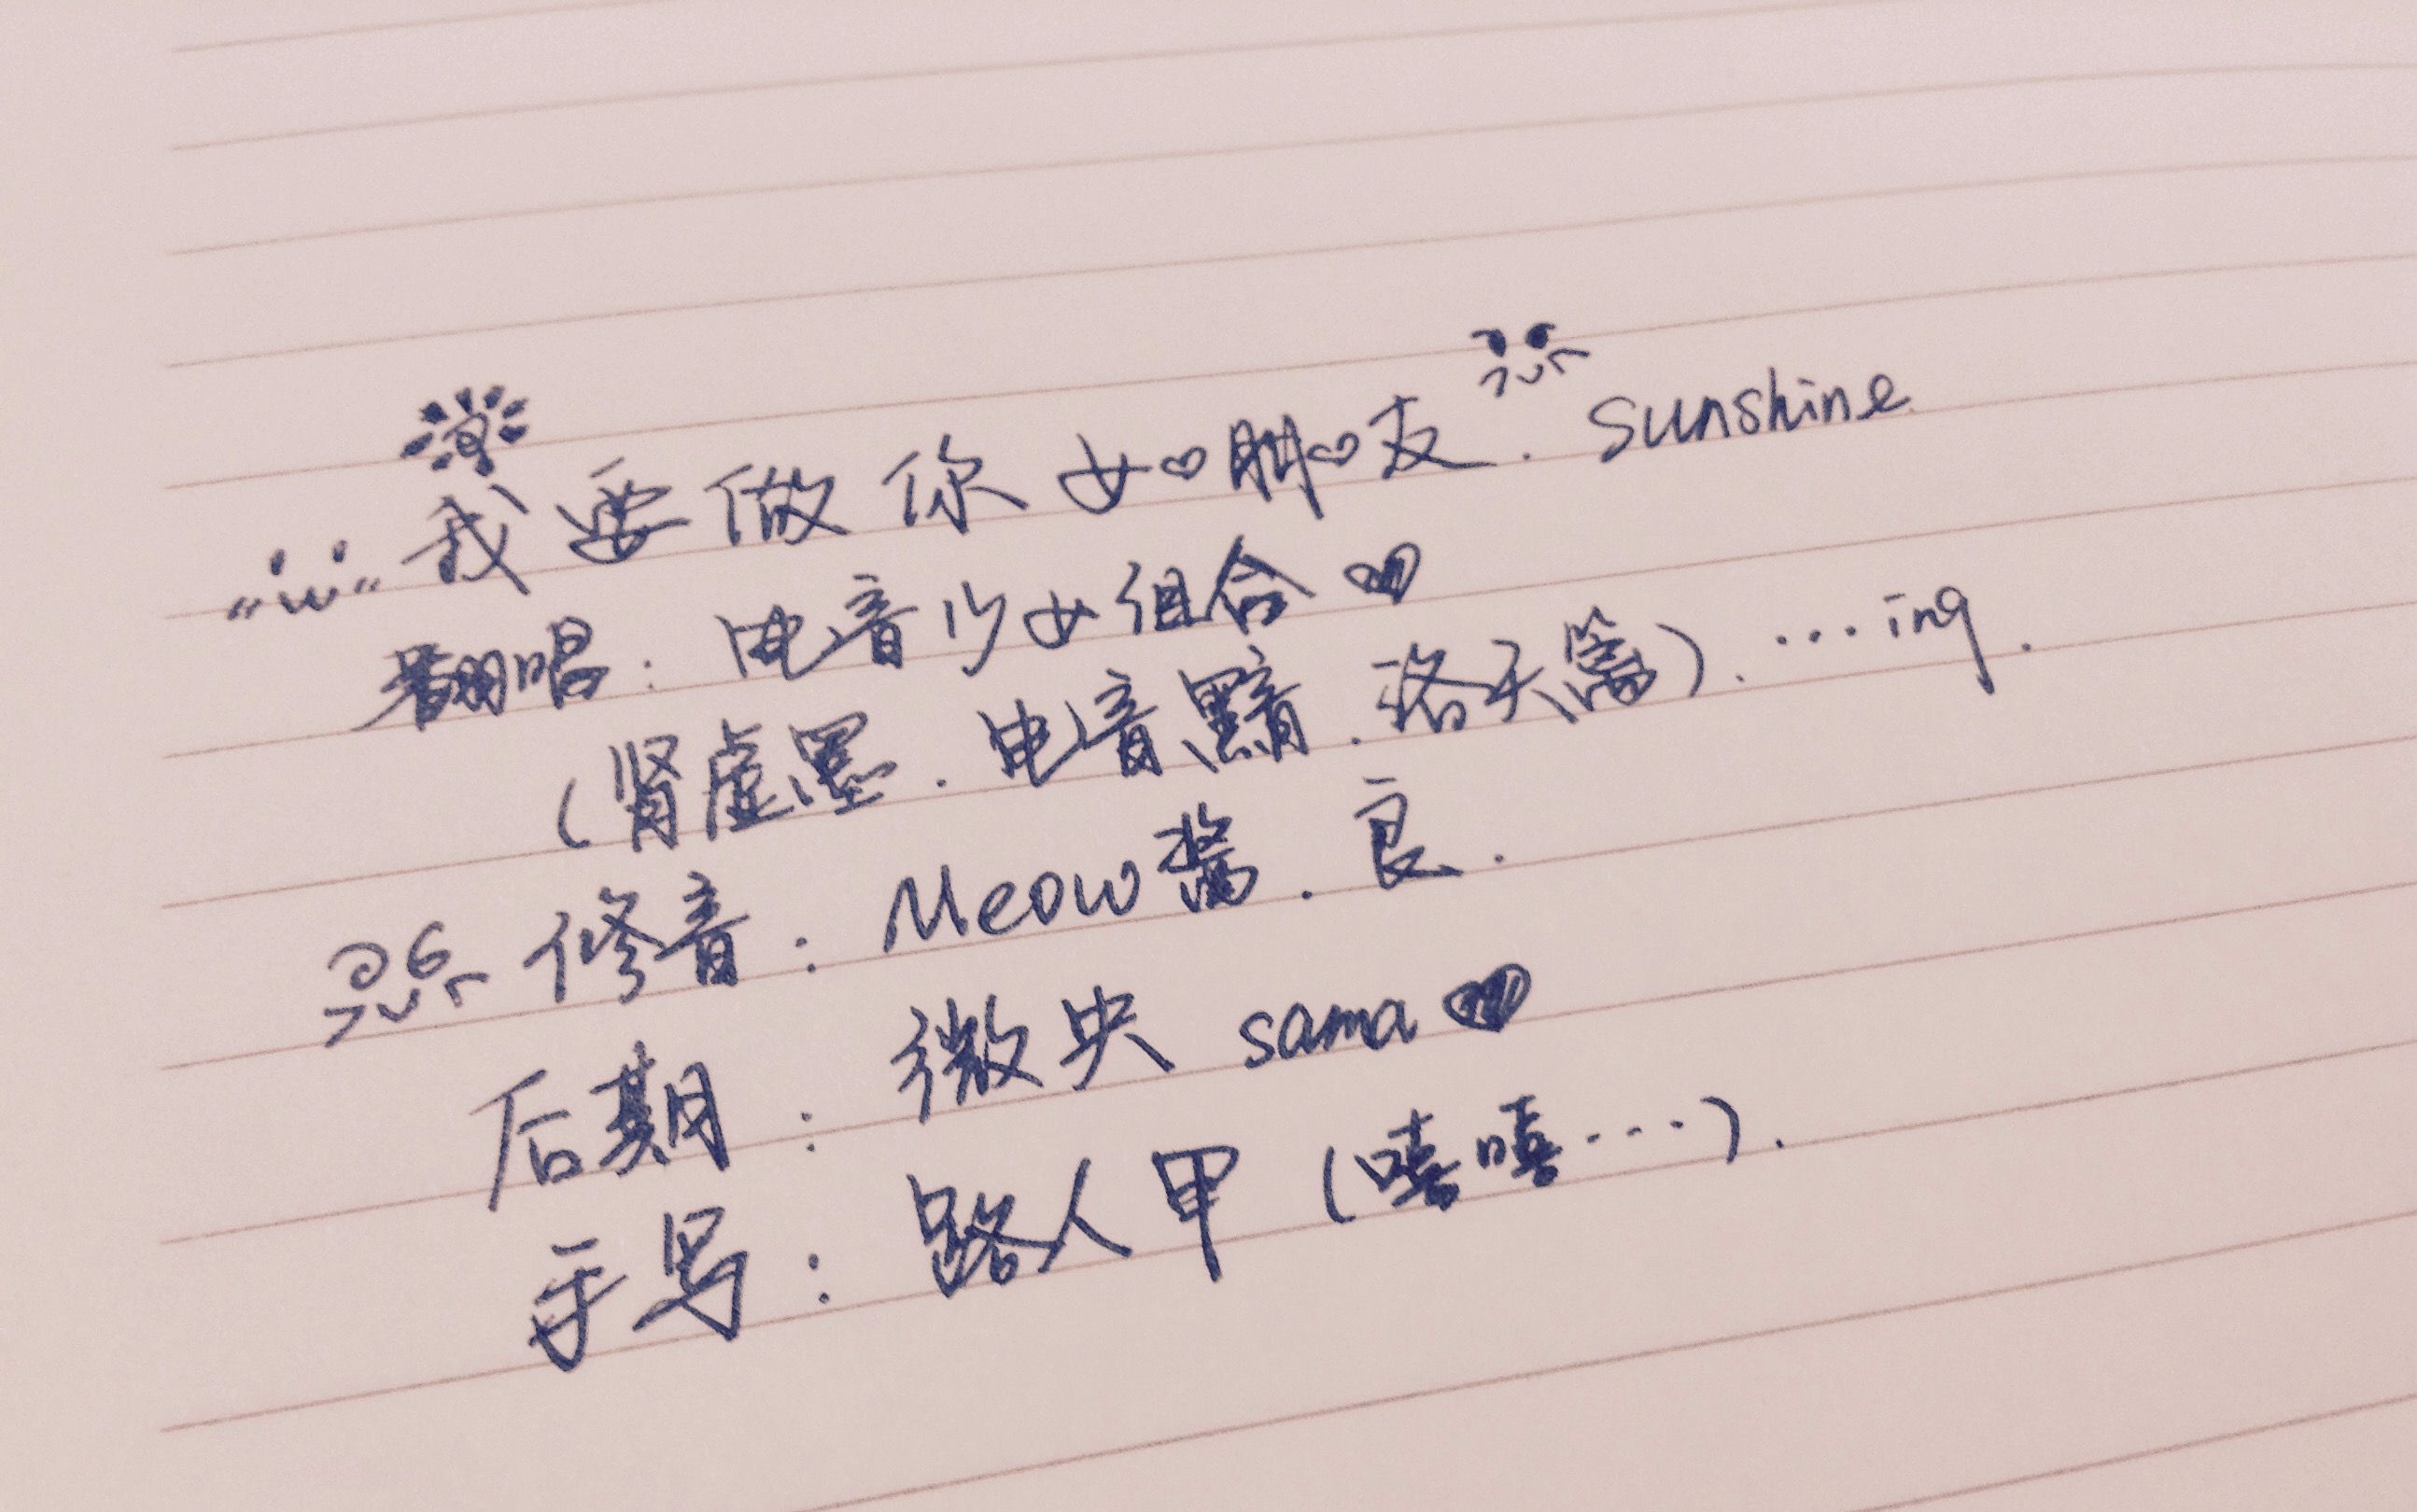 我要做你女♡朋♡友.sunshine
翻唱:电音少女组合♥
(肾虚墨.电音黯.洛天篱)....ing.
修音:Meow酱.良.
后期:微央sama♥
手写:路人甲(嘻嘻...).